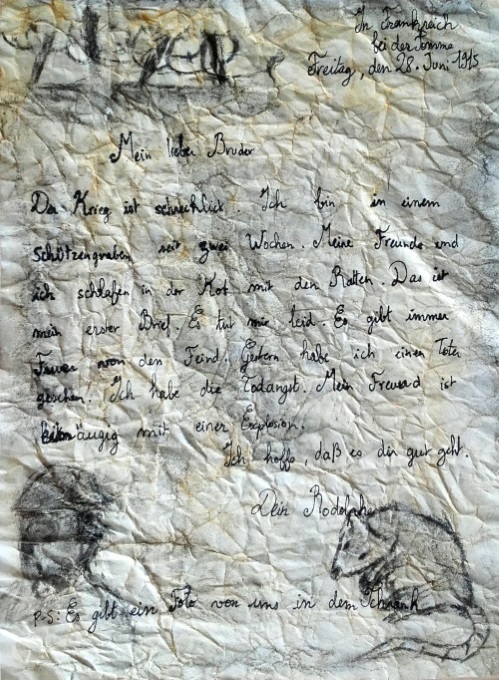 In Frankreich
bei der Somme
Freitag, den 28. Juni 1915
Mein lieber Bruder
Der Krieg ist schrecklick. Ich bin in einem
Schützengraben seit zwei Wochen. Meine Freunde und
ich schlafen in der Kot mit den Ratten. Das ist
mein erster Brief. Es tut mir leid. Es gibt immer
Feuer von den Feind. Gestern habe ich einen Toter
gesehen. Ich habe die Todangst. Mein Freund ist
einäugig mit einer Explosion.
Ich hoffe, daß es dir gut geht.
Dein Rodolphe
P-S: Es gibt ein Foto von uns in dem Schrank